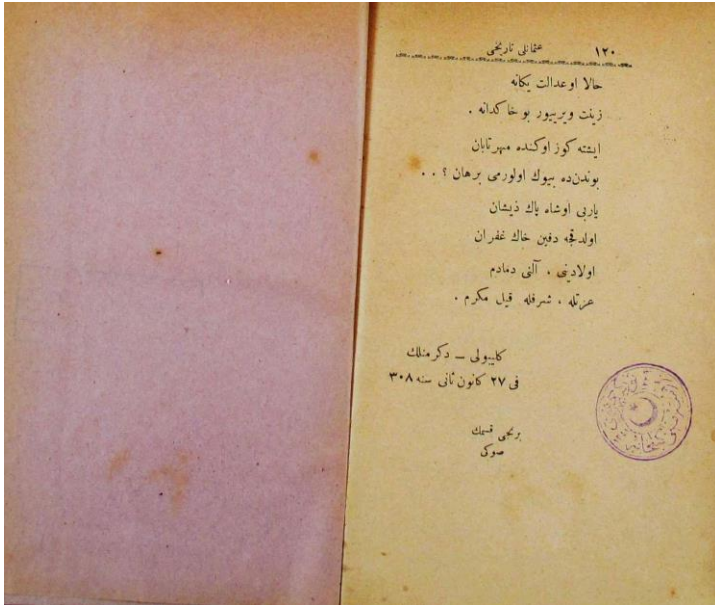 ١٢٠ عثمانلی تاریخی
حالا او عدالت یکانه
زینت ویرییور بو خاکدانه .
ایشته کوز اوکنده مهر تابان
بوندن ده بیوك اولورمی برهان ؟ . .
یاربی او شاه پاك ذیشان
اولدقجه دفین خاك غفران
اولادینی ، آلنی دمادم
عزتله ، شرفله قیل مکرم .
کلیبولی — دکرمنلك
فی ٢٧ کانون ثانی سنه ٣٠٨
برنجی قسمك
صوکی